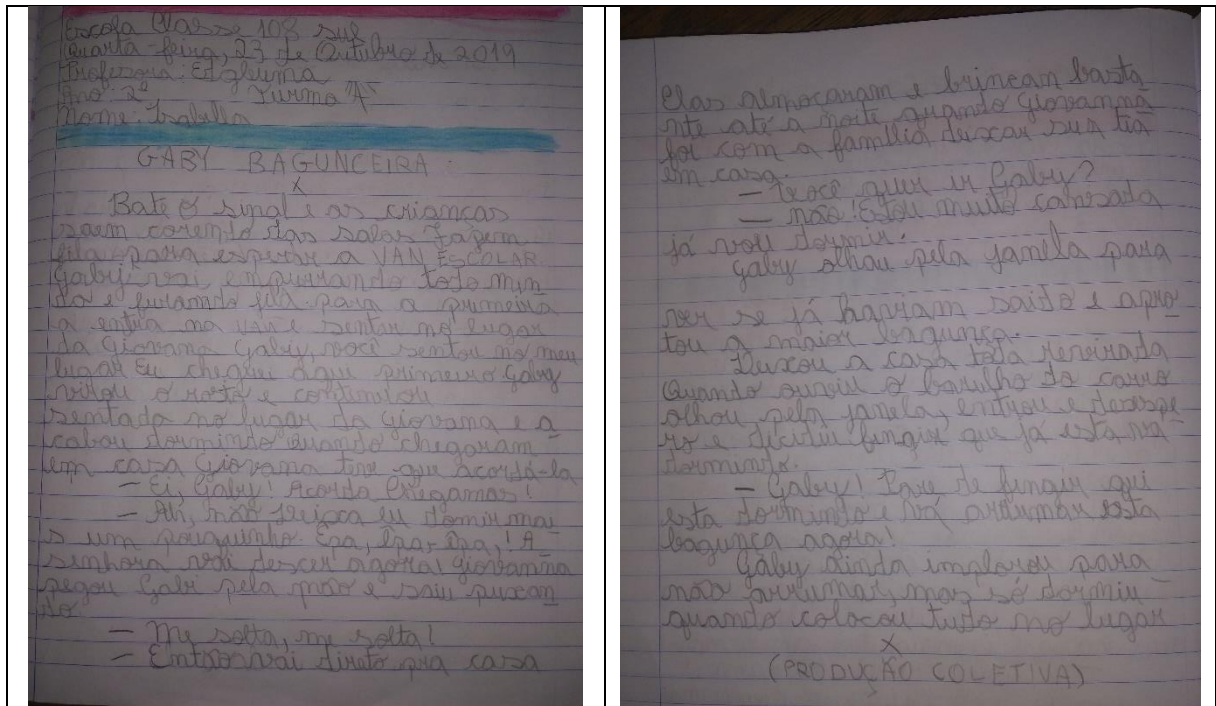 Escola Classe 108 sul
Quarta-feira, 23 de Outubro de 2019
Professora: Edzluma
Ano: 2º Turma "A"
Nome: Isabella
GABY BAGUNCEIRA
X
Bate o sinal e as crianças
saem corendo das salas Fazem
fila para esperar a VAN ESCOLAR
Gabyi vai empurrando todo mun
do e furando fila para a primeira
a entra na VAN e sentar no lugar
da Giovana Gaby, você sentou no meu
lugar Eu cheguei aqui primeiro Gaby
virou o rosto e continuou
sentada no lugar da Giovana e a
cabou dormindo quando chegaram
em casa Giovana teve que acordá-la
— Ei, Gaby! Acorda Chegamos!
— Ah, não deixa eu domir mai
s um pouquinho. Epa, Epa, Epa,! A
senhora vai descer agora! Giovanna
pegou Gabi pela mão e saiu puxan
do
— Me solta, me solta!
— Então vai direto pra casa
Elas almoçaram e brincam basta
nte até a noite quando Giovanna
foi com a família deixar sua tia
em casa.
— Você quer ir Gaby?
— não! Estou muito cansada
já vou dormir.
Gaby olhou pela yamela para
ver se já haviam saido e apro
tou a maior bagunça.
Deixou a casa toda revirada
Quando ouviu o barulho do carro
olhou pela janela, entrou e desespe
ro e decidiu fingir que já esta va
dormindo.
— Gaby! Pare de fingir qui
esta dormindo e vá arrumar esta
bagunça agora!
Gaby ainda implorou para
não arrumar, mas só dormiu
quando colocou tudo no lugar
X
(PRODUÇÃO COLETIVA)